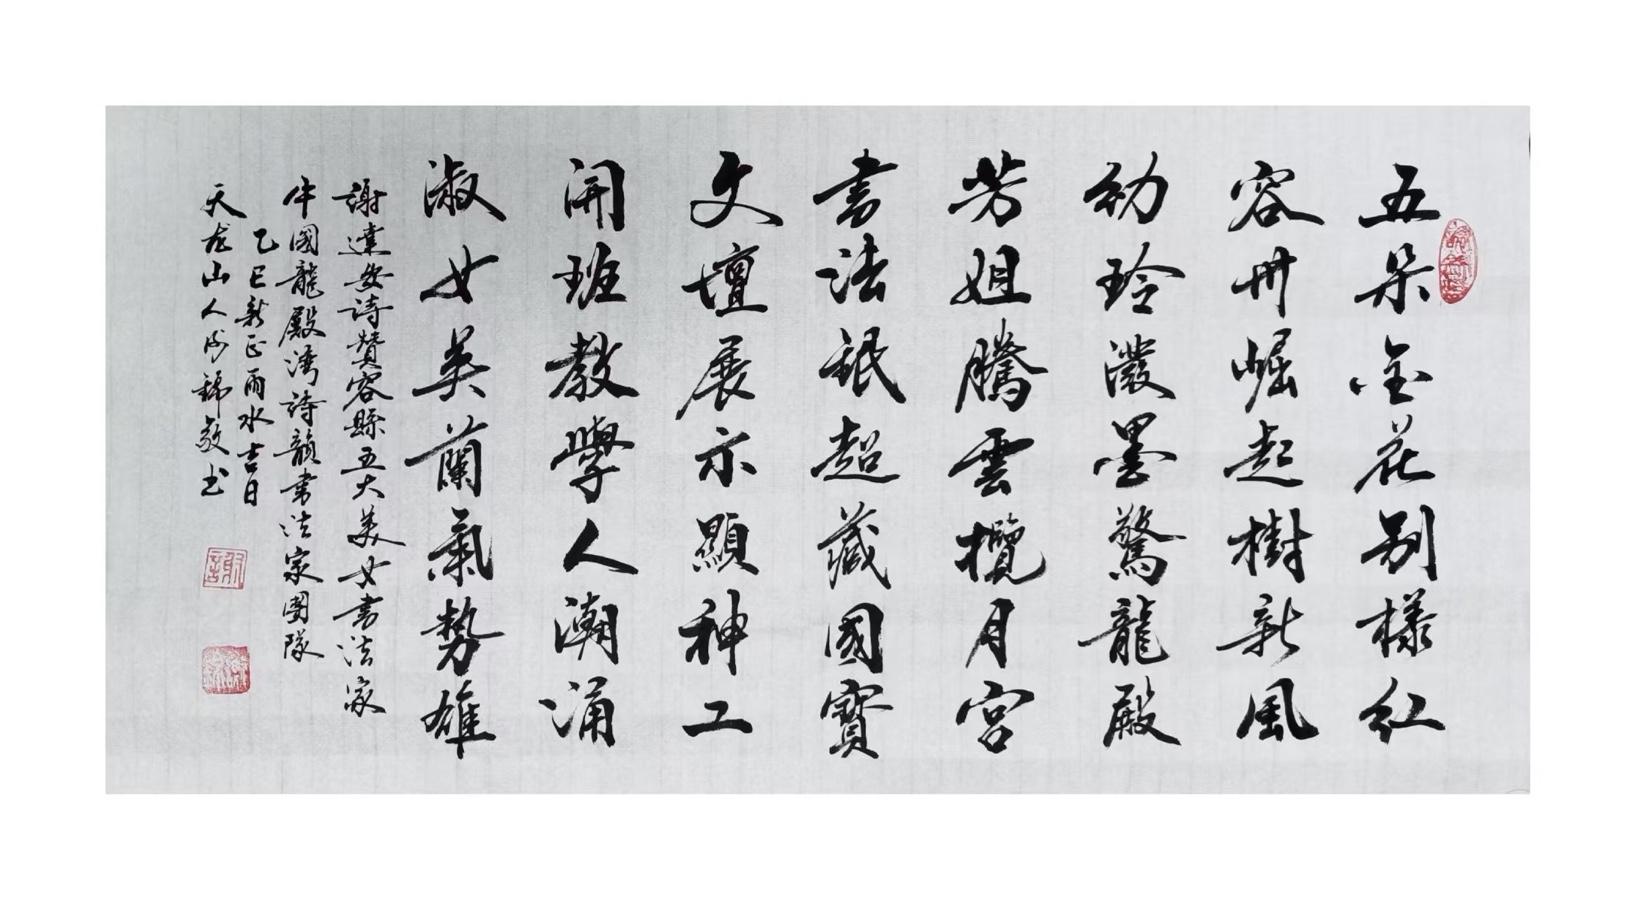 五朵金花别樣紅
容卅崛起樹新風
幼玲潑墨驚龍殿
芳姐騰雲攬月宮
書法銀超藏國寳
文壇展示顯神工
開班教學人潮涌
淑女英蘭氣勢雄
謝達安詩贊容縣五大美女書法家
中國龍殿灣詩韻書法家團隊
乙巳新正雨水吉日
天龙山人谢錦敬书